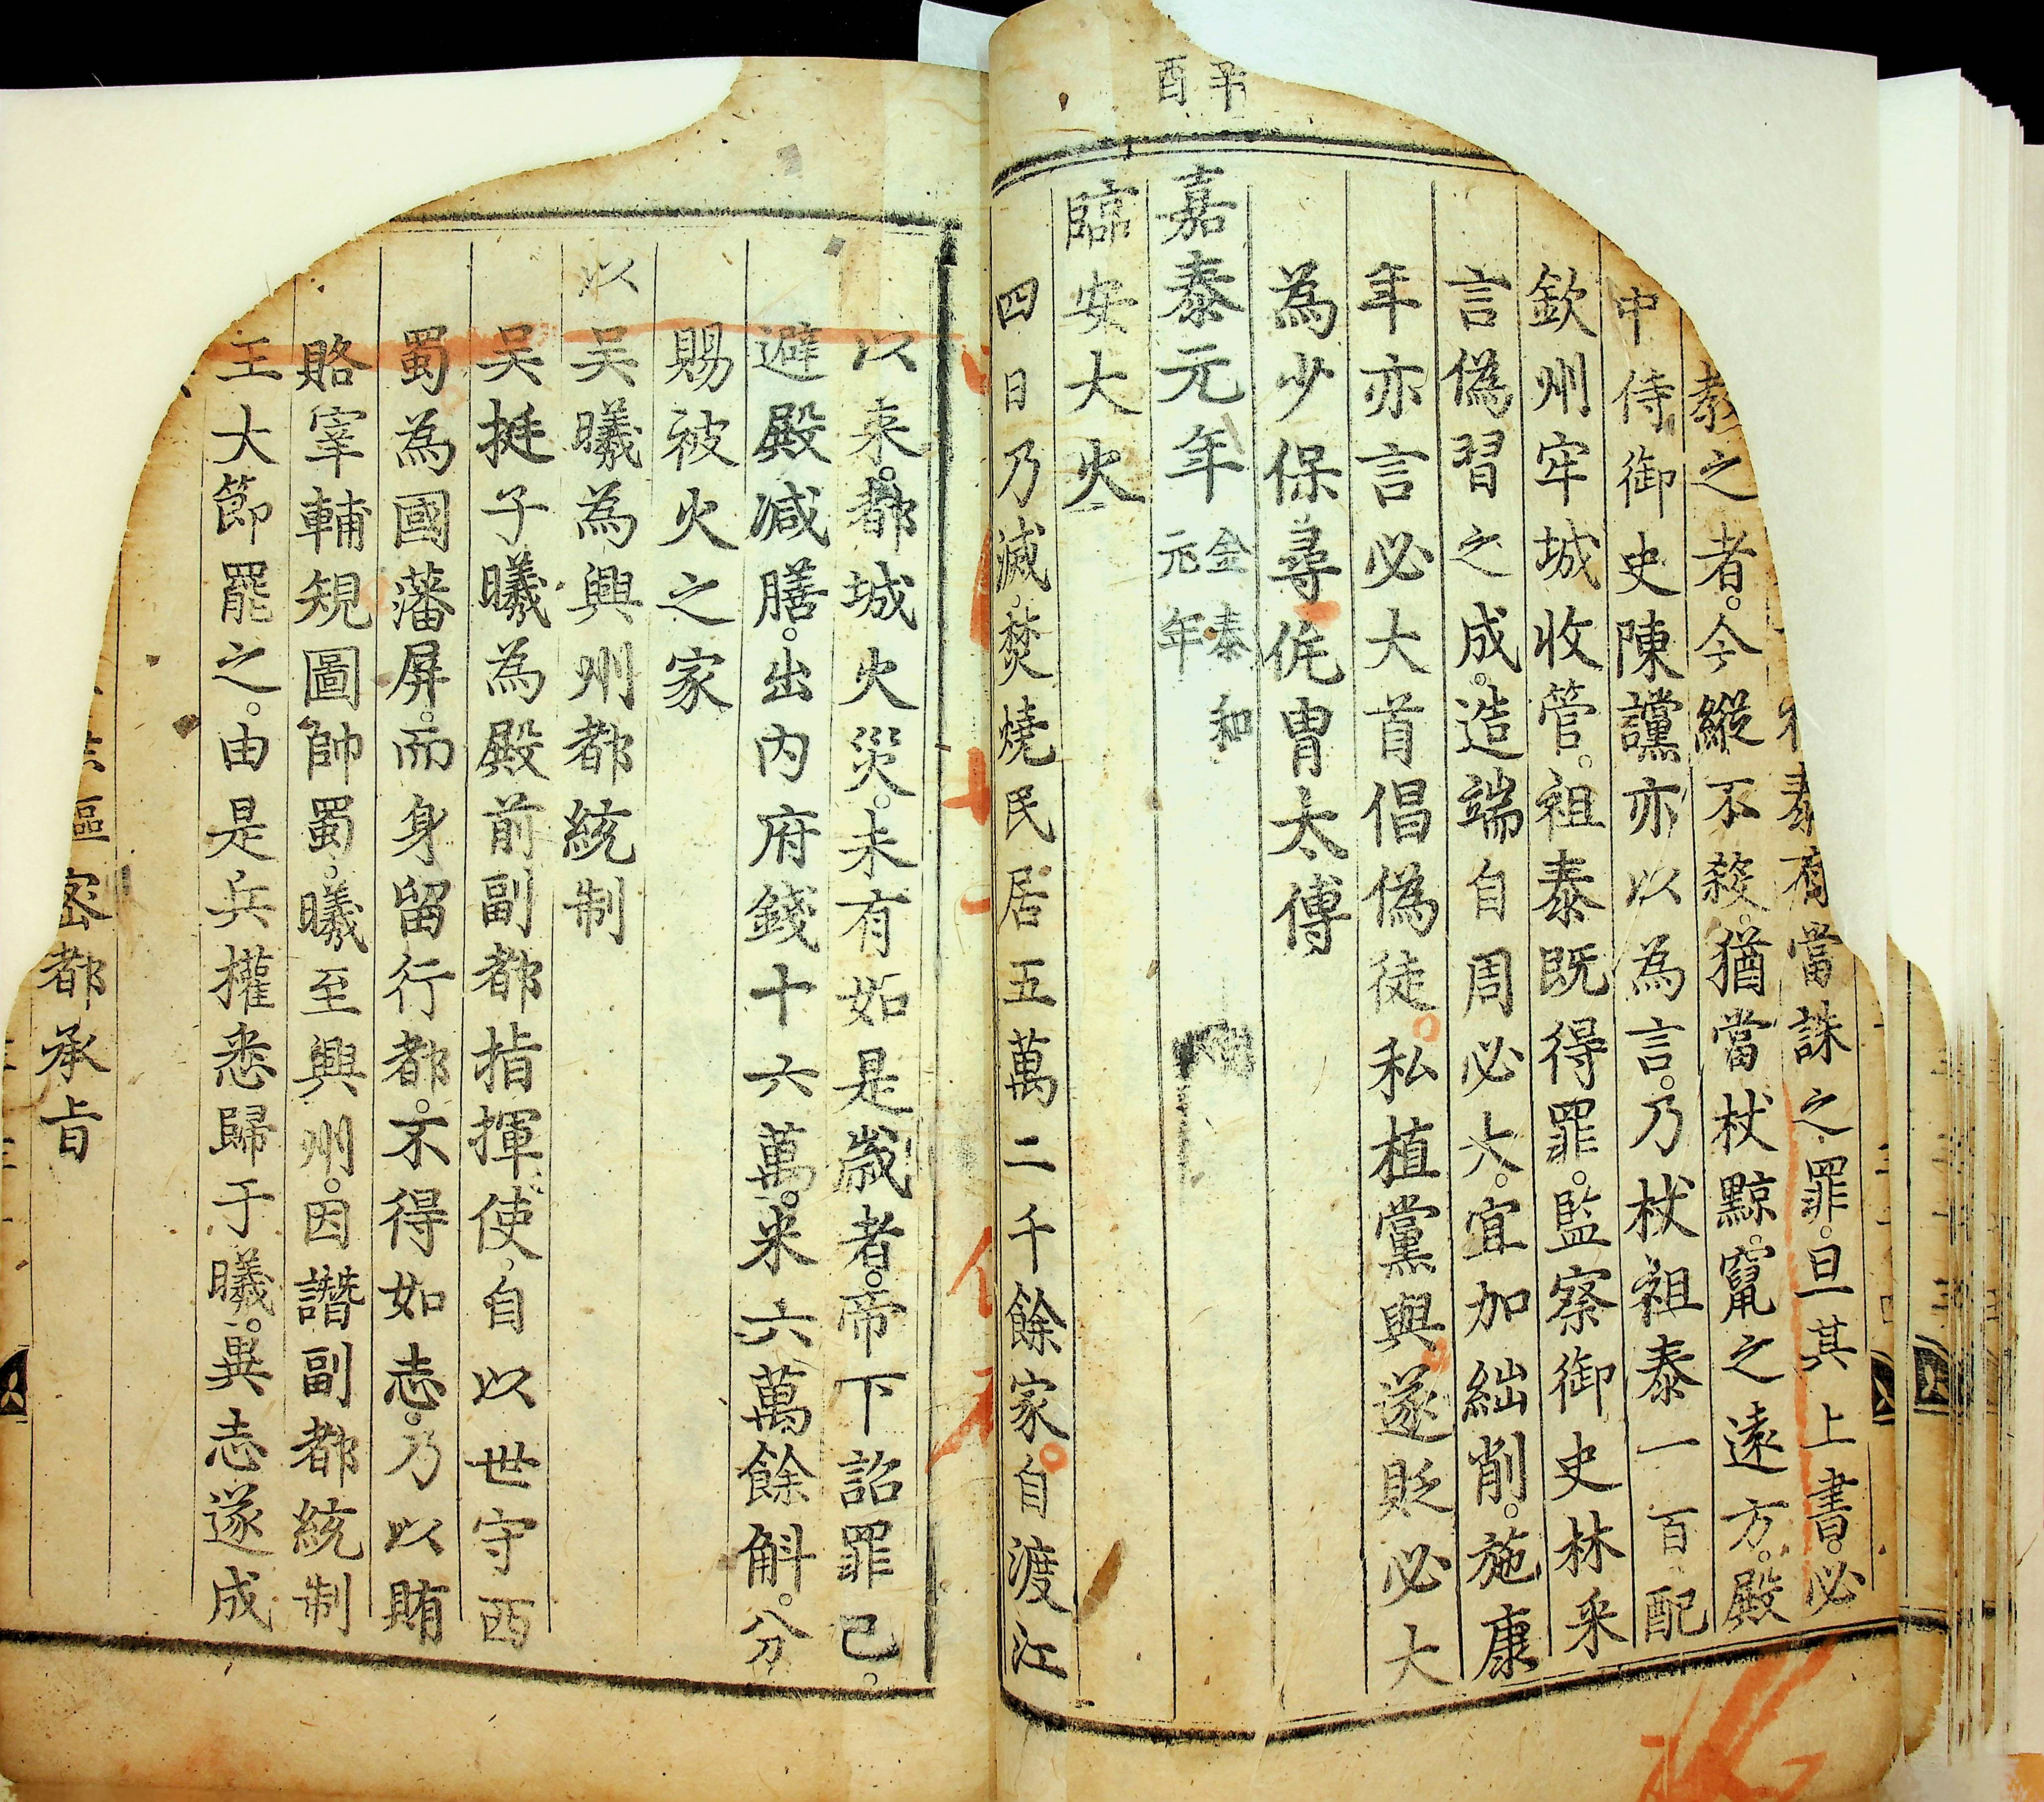 祖泰有當誅之罪。旦其上書。必
教之者。今縱不殺。猶當杖黥。竄之遠方。殿
中侍御史陳讜亦以為言。乃杖祖泰一百配
欽州牢城收管。祖泰既得罪。監察御史林采
言偽習之成。造端自周必大。宜加絀削。施康
年亦言必大首倡偽徒。私植黨與。遂貶必大
為少保尋侂冑太傅
辛酉
嘉泰元年金泰和元年
臨安大火
四日乃滅。焚燒民居五萬二千餘家。自渡江
以来。都城火災。未有如是歲者。帝下詔罪己。
避殿减膳。出內府錢十六萬。米六萬餘斛。分
賜被火之家
以吴曦為興州都統制
吴挺子曦為殿前副都指揮使。自以世守西
蜀為國藩屏。而身留行都。不得如志。乃以賄
賂宰輔規圖帥蜀。曦至興州。因譖副都統制
王大節罷之。由是兵權悉歸于曦。異志遂成
密都承旨